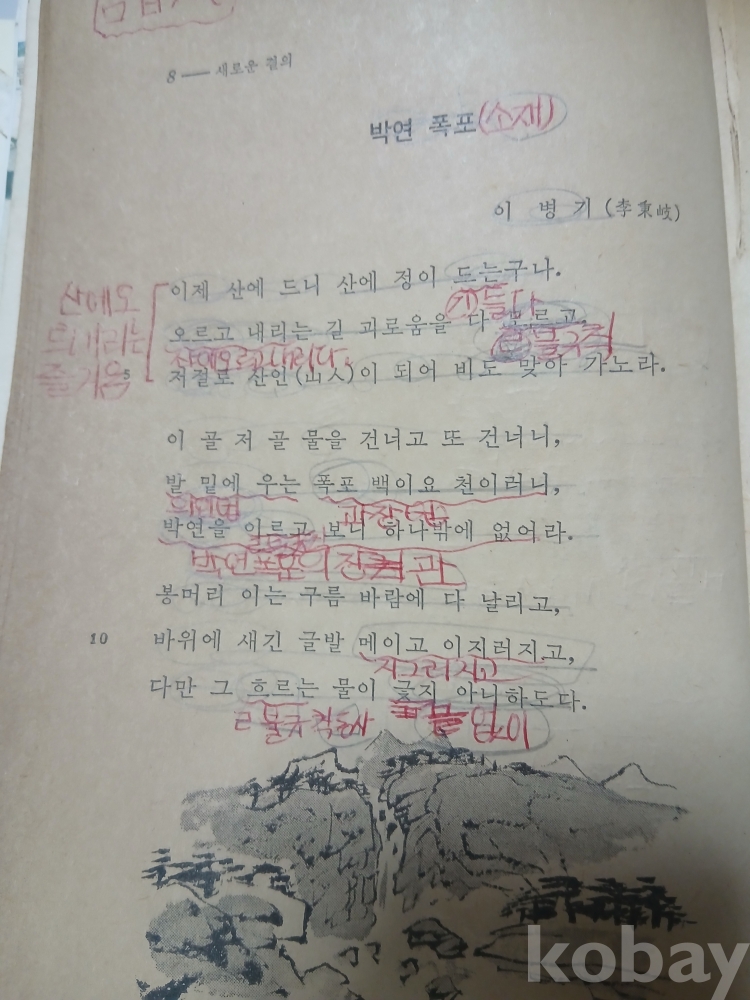 8 — 새로운 결의
박연 폭포 (소재)
이 병 기 (李秉岐)
이제 산에 드니 산에 정이 드는구나.
정들다
오르고 내리는 길 괴로움을 다 모르고,
산에 오르고 내린다. 르 불규칙
저절로 산인(山人)이 되어 비도 맞아 가노라.
산에 오
르내리는
즐거움
5
이 골 저 골 물을 건너고 또 건너니,
발 밑에 우는 폭포 백이요 천이러니,
의인법 과장법
박연을 이르고 보니 하나밖에 없어라.
박연폭포의 장관
봉머리 이는 구름 바람에 다 날리고,
10 바위에 새긴 글발 메이고 이지러지고,
찌그러지고
다만 그 흐르는 물이 긏지 아니하도다.
르 불규칙동사 끝 없이
kobay